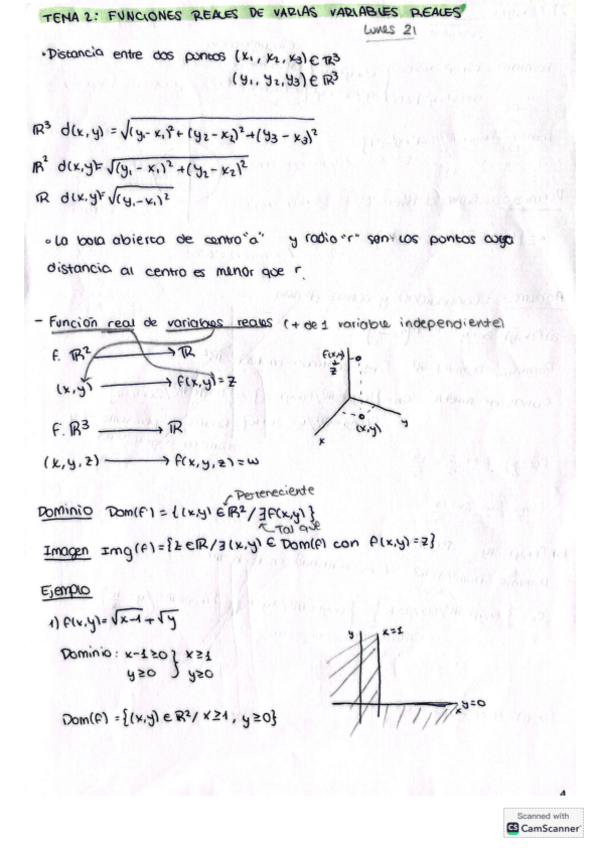 TEMA 2: FUNCIONES REALES DE VARIAS VARIABLES REALES
Lunes 21
• Distancia entre dos puntos (x₁, x₂, x₃) ∈ ℝ³
(y₁, y₂, y₃) ∈ ℝ³
ℝ³ d(x,y) = √(y₁-x₁)²+(y₂-x₂)²+(y₃-x₃)²
ℝ² d(x,y)= √(y₁-x₁)²+(y₂-x₂)²
ℝ d(x,y)= √(y₁-x₁)²
• La bola abierta de centro "a" y radio "r" son los puntos cuya
distancia al centro es menor que r.
- Función real de variables reales (+ de 1 variable independiente)
f. ℝ² → ℝ
(x,y) → f(x,y)=z
f. ℝ³ → ℝ
(x,y,z) → f(x,y,z)=w
f(x,y)
z
(x,y)
x
y
Perteneciente
Dominio Dom(f)={(x,y) ∈ ℝ²/∃f(x,y)}
Tal que
Imagen Img(f)={z∈ℝ/∃(x,y) ∈ Dom(f) con f(x,y)=z}
Ejemplo
1) f(x,y)=√x-1+√y
Dominio: x-1≥0 } x≥1
y≥0 } y≥0
Dom(f)={(x,y)∈ℝ²/x≥1, y≥0}
y
x=1
y=0
x
1
Scanned with
CS CamScanner